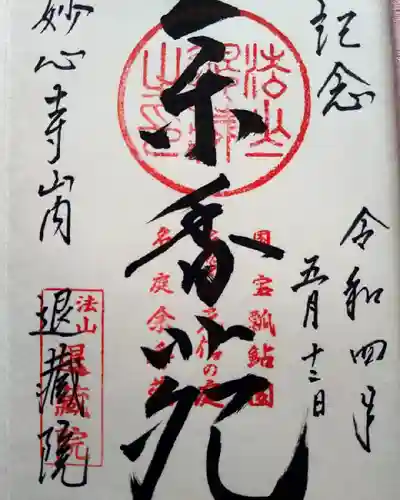 記念
令和四年
五月十二日
余香苑
国宝瓢鮎図
元信の庭
名庭余香苑
妙心寺山内
退藏院
法山
退藏院